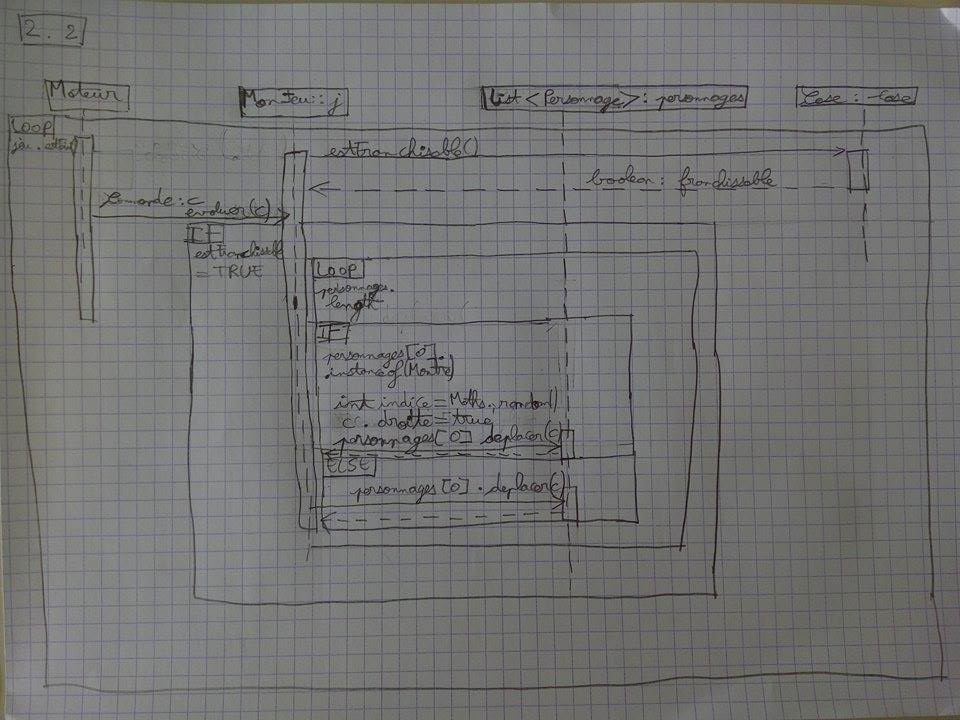 2.2
Moteur
MonJeu::j
List<Personnage>: personnages
Case : -Case
LOOP
estFranchissable()
boolean : franchissable
Comande : c
evoluer(c)
IF
estFranchissable
= TRUE
LOOP
personnages.
length
IF
personnages[0].
.instanceof(Monstre)
int indice = Maths.random()
c. droite = true
personnages[0].deplacer(c)
ELSE
personnages[0].deplacer(c)